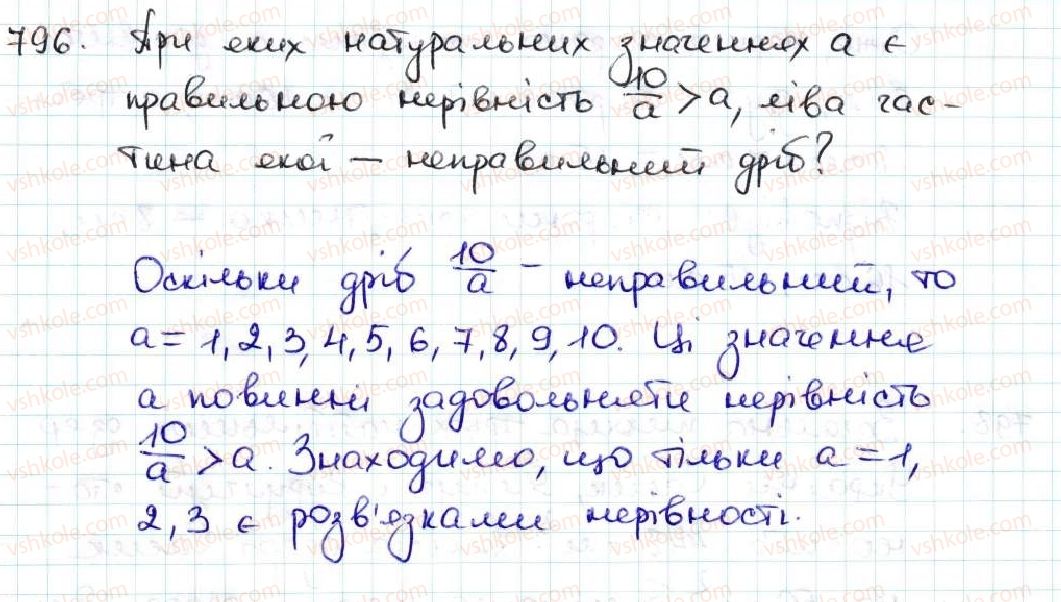 796. При яких натуральних значеннях a є
правильною нерівність 10/a > a, ліва час-
тина якої – неправильний дріб?
Оскільки дріб 10/a – неправильний, то
a = 1, 2, 3, 4, 5, 6, 7, 8, 9, 10. Ці значення
a повинні задовольняти нерівність
10/a > a. Знаходимо, що тільки a = 1,
2, 3 є розв'язками нерівності.